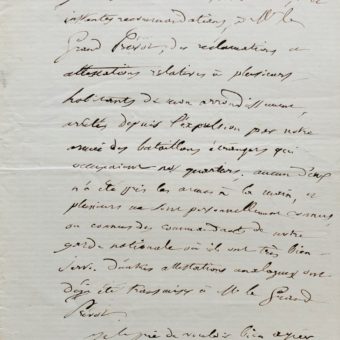 instantes recommandations, de Mr le
Grand Prévot, des réclamations et
attestations relatives à plusieurs
habitants de mon arrondissement,
arrêtés depuis l'expulsion par notre
armée des bataillons étrangers qui
occupaient nos quartiers. aucun d'eux
n'a été pris les armes à la main, et
plusieurs me sont personnellement connus,
ou connus des commandants de notre
garde nationale où ils ont très bien
servi. d'autres attestations analogues ont
déjà été transmises à Mr le Grand
Prévot.
Je le prie de vouloir bien